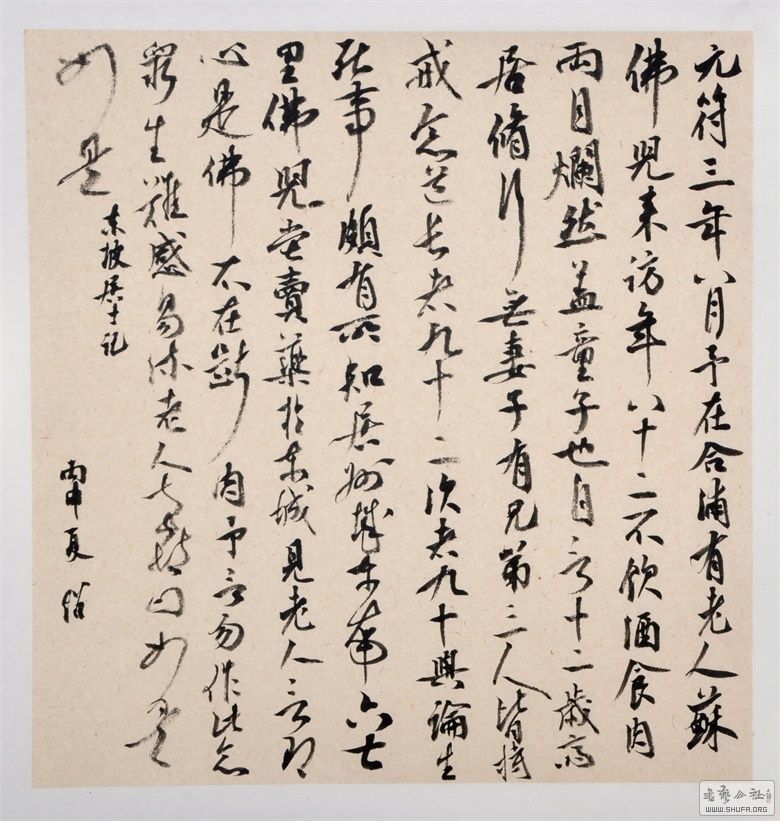 元符三年八月予在合浦有老人蘇
佛兒来訪年八十二不飲酒食肉
兩目爛然蓋童子也自言十二歲齋
居脩行無妻子有兄弟三人皆持
戒念道長者九十二次者九十與論生
死事頗有所知居州城東南六七
里佛兒嘗賣藥於東城見老人言即
心是佛不在斷肉予言勿作此念
眾生難感易流老人大喜曰如是
如是
東坡居士記
丙申夏
書藝公社
WWW.SHUFA.ORG